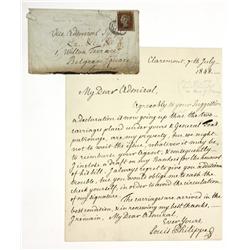 Vice Admiral Sir
1, Wilton Terrace
Belgrave Square
Claremont, 7th July
1848.
My Dear Admiral,
Agreeably to your Suggestion
a declaration is now going up that the two
carriages placed under yours & General
patronage, are my property, but we ought
not to wait the time, whatever it may be,
to reimburse your Agent, & consequently
I inclose a draft on my Bankers for the amount
of his bill. I always regret to give you additional
trouble, but you would oblige me to cash the
check yourself, in order to avoid the circulation
of my Signature. The carriages are arrived in the
best condition, & in renewing my best thanks,
I remain, My Dear Admiral,
Ever Yours
Louis Philippe